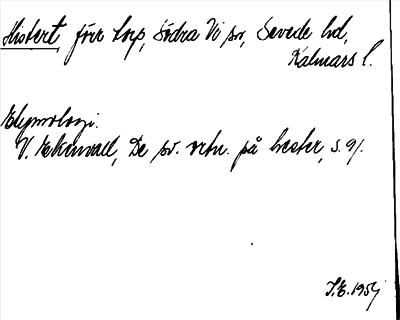 Histert förr torp, Södra Vi sn, Sevede hd,
Kalmars l.
Etymologi.
V. Ekenvall, De sv. ortn. på hester, s. 91.
I.E. 1954